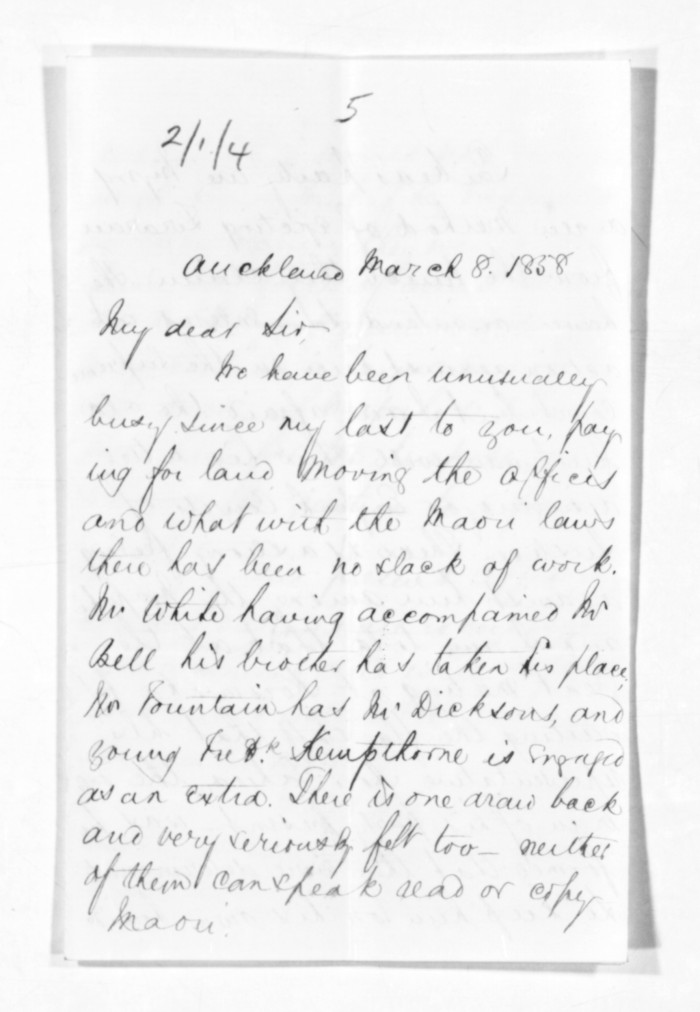 5
2/1/4
Auckland March 8. 1858
My dear Sir,
We have been unusually
busy since my last to you, pay
ing for land moving the offices
and what with the Maori laws
there has been no slack of work.
Mr White having accompanied Mr
Bell his brother has taken his place,
Mr Fountain has Mr Dicksons, and
young Fredk. Kempthorne is engaged
as an extra. There is one draw back
and very seriously felt too - neither
of them can speak read or copy
Maori.